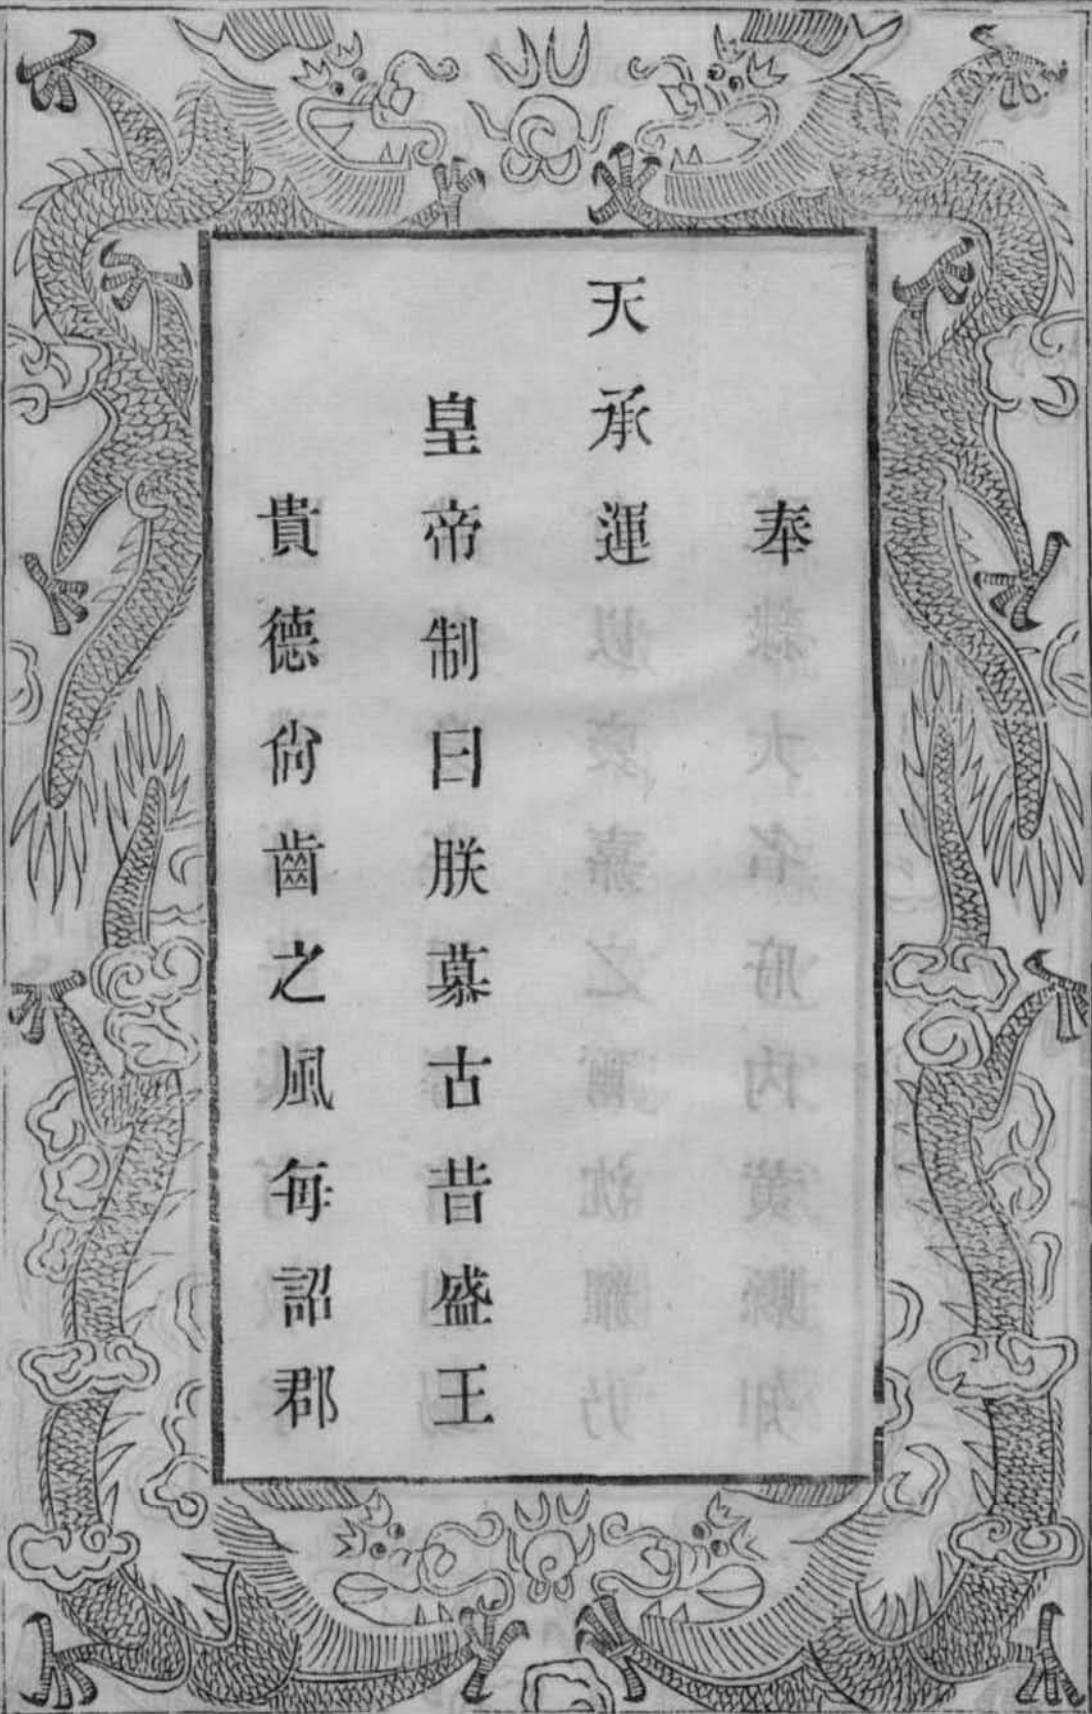 奉
天承運
皇帝制曰朕慕古昔盛王
貴德尙齒之風每詔郡